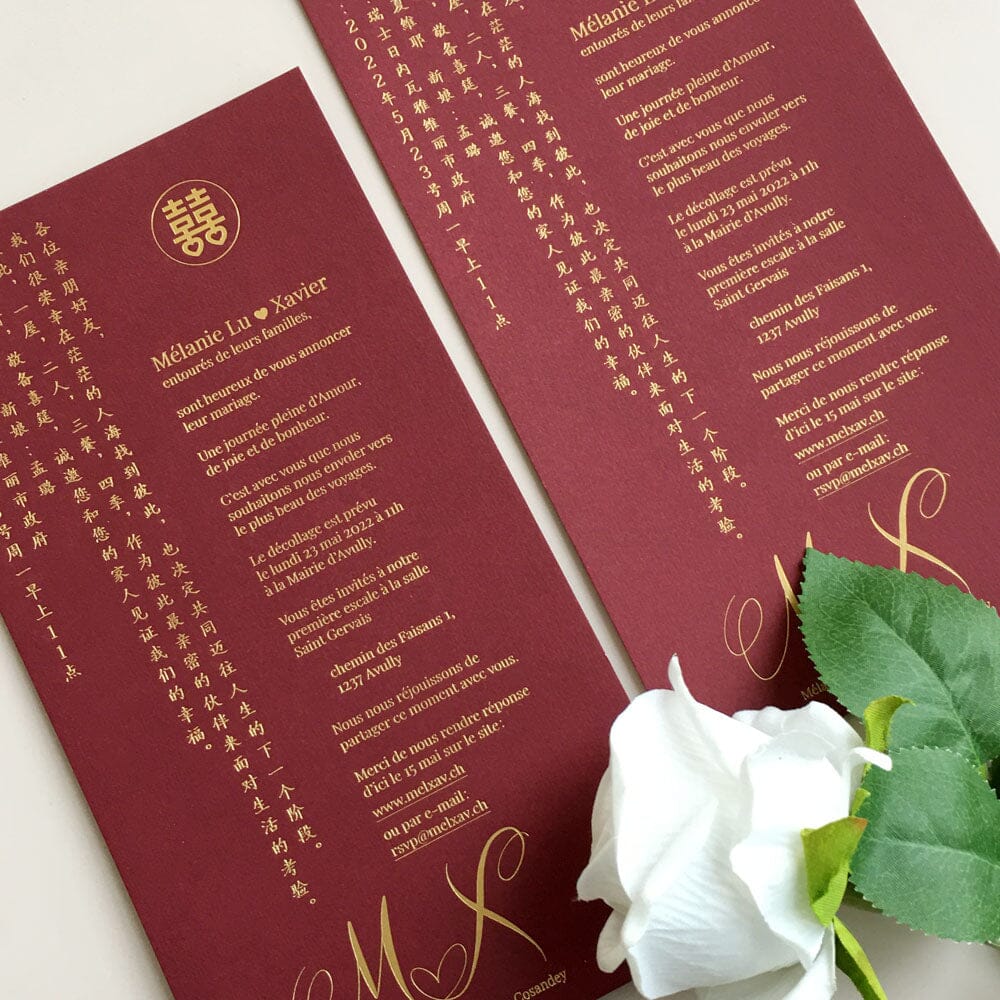 囍
各位亲朋好友,
我们很荣幸在茫茫的人海找到彼此,也决定共同迈往人生的下一个阶段。
此,一屋,二人,三餐,四季,作为彼此最亲密的伙伴来面对生活的考验。
敬备喜筵,诚邀您和您的家人见证我们的幸福。
新娘:孟璐
维丽市政府
号周一早上11点
Mélanie Lu Xavier
entourés de leurs familles,
sont heureux de vous annoncer
leur mariage.
Une journée pleine d'Amour,
de joie et de bonheur.
C'est avec vous que nous
souhaitons nous envoler vers
le plus beau des voyages.
Le décollage est prévu
le lundi 23 mai 2022 à 11h
à la Mairie d'Avully.
Vous êtes invités à notre
première escale à la salle
Saint Gervais
chemin des Faisans 1,
1237 Avully
Nous nous réjouissons de
partager ce moment avec vous.
Merci de nous rendre réponse
d'ici le 15 mai sur le site:
www.melxav.ch
ou par e-mail:
rsvp@melxav.ch
M X
Cosandey
在茫茫的人海找到彼此,也决定共同迈往人生的下一个阶段。
屋,二人,三餐,四季,作为彼此最亲密的伙伴来面对生活的考验。
敬备喜筵,诚邀您和您的家人见证我们的幸福。
夏维耶 新娘:孟璐
瑞士日内瓦雅维丽市政府
:2022年5月23号周一早上11点
Mélanie
entourés de leurs familles,
sont heureux de vous annoncer
leur mariage.
Une journée pleine d'Amour,
de joie et de bonheur.
C'est avec vous que nous
souhaitons nous envoler vers
le plus beau des voyages.
Le décollage est prévu
le lundi 23 mai 2022 à 11h
à la Mairie d'Avully.
Vous êtes invités à notre
première escale à la salle
Saint Gervais
chemin des Faisans 1,
1237 Avully
Nous nous réjouissons de
partager ce moment avec vous.
Merci de nous rendre réponse
d'ici le 15 mai sur le site:
www.melxav.ch
ou par e-mail:
rsvp@melxav.ch
M X